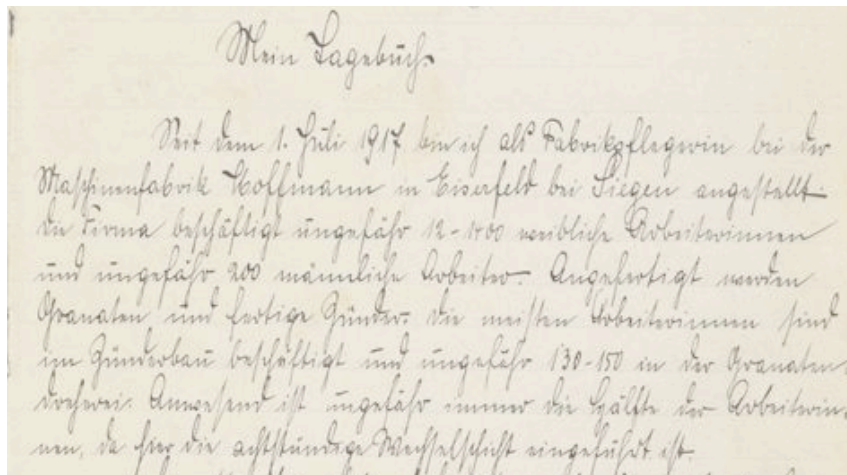 Mein Tagebuch.
Seit dem 1. Juli 1917 bin ich als Fabrikpflegerin bei der
Maschinenfabrik Hoffmann in Eiserfeld bei Siegen angestellt.
Die Firma beschäftigt ungefähr 12-1400 weibliche Arbeiterinnen
und ungefähr 200 männliche Arbeiter. Angefertigt werden
Granaten und fertige Zünder. Die meisten Arbeiterinnen sind
im Zünderbau beschäftigt und ungefähr 130-150 in der Granaten-
dreherei. Anwesend ist ungefähr immer die Hälfte der Arbeiterin-
nen, da hier die achtstündige Wechselschicht eingeführt ist.